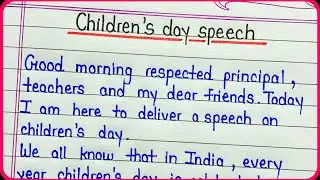 Children's day speech
Good morning respected principal,
teachers and my dear friends. Today
I am here to deliver a speech on
children's day.
We all know that in India, every
year children's day is